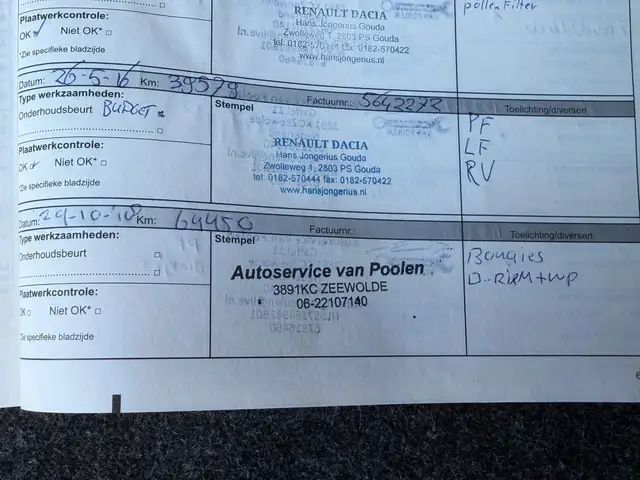 Plaatwerkcontrole:
OK Niet OK*
*Zie specifieke bladzijde
RENAULT DACIA
Hans Jongerius Gouda
Zwolleweg 1, 2803 PS Gouda
fax: 0182-570422
www.hansjongerius.nl
pollenfilter
Datum: 26-5-16 Km: 39579 Factuurnr.: 5642273 Toelichting/diversen
Type werkzaamheden:
Onderhoudsbeurt BUDGET
Plaatwerkcontrole:
OK Niet OK*
*Zie specifieke bladzijde
Stempel
RENAULT DACIA
Hans Jongerius Gouda
Zwolleweg 1, 2803 PS Gouda
tel: 0182-570444 fax: 0182-570422
www.hansjongerius.nl
PF
LF
RV
Datum: 29-10-'18 Km: 64450 Factuurnr.: Toelichting/diversen
Type werkzaamheden:
Onderhoudsbeurt
Plaatwerkcontrole:
OK Niet OK*
Zie specifieke bladzijde
Stempel
Autoservice van Poolen
3891KC ZEEWOLDE
06-22107140
Bougies
D-RIEM+WP
6